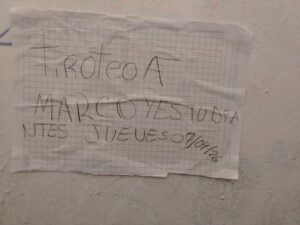 TIROTEO A
MARCO Y ESTUDIA
NTES JUEVES 09/04/26